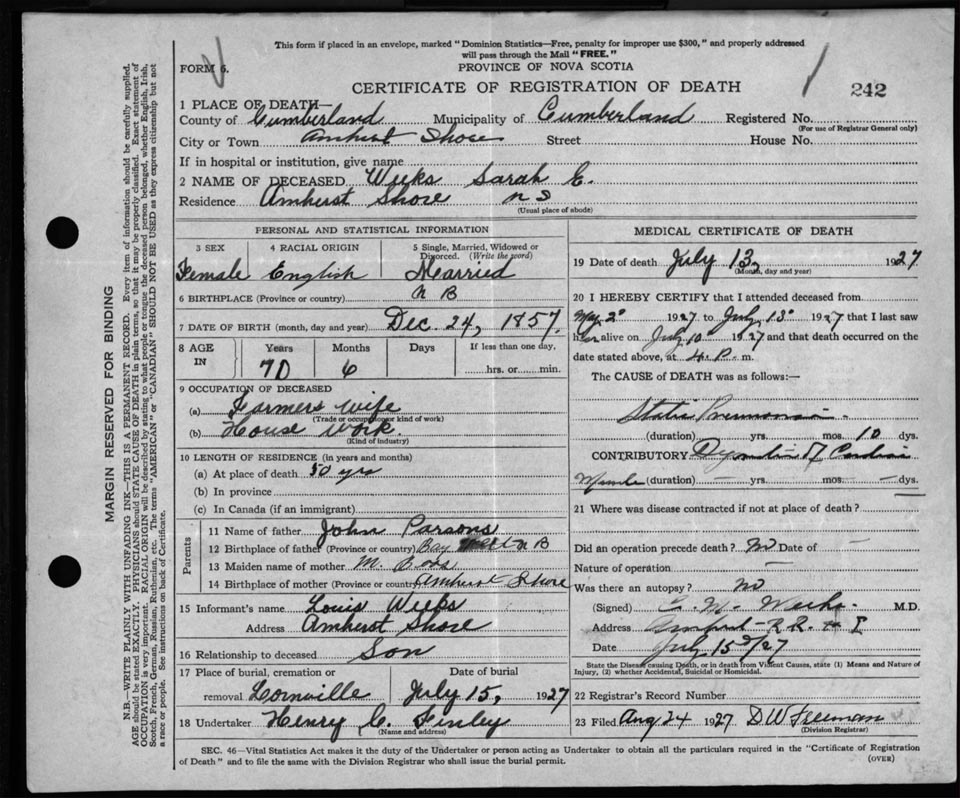 This form if placed in an envelope, marked "Dominion Statistics—Free, penalty for improper use $300," and properly addressed
will pass through the Mail "FREE."
FORM 6.
PROVINCE OF NOVA SCOTIA
CERTIFICATE OF REGISTRATION OF DEATH
242
1 PLACE OF DEATH—
County of Cumberland Municipality of Cumberland Registered No.
(For use of Registrar General only)
City or Town Amherst Shore Street House No.
If in hospital or institution, give name
2 NAME OF DECEASED Weeks Sarah E.
Residence Amherst Shore N S
(Usual place of abode)
PERSONAL AND STATISTICAL INFORMATION
3 SEX 4 RACIAL ORIGIN 5 Single, Married, Widowed or Divorced. (Write the word)
Female English Married
6 BIRTHPLACE (Province or country) N B
7 DATE OF BIRTH (month, day and year) Dec. 24, 1857
8 AGE IN Years Months Days If less than one day,
70 6 hrs. or min.
9 OCCUPATION OF DECEASED
(a) Farmers wife
(Trade or occupation or kind of work)
(b) House work.
(Kind of industry)
10 LENGTH OF RESIDENCE (in years and months)
(a) At place of death 50 yrs
(b) In province
(c) In Canada (if an immigrant)
Parents
11 Name of father John Parsons
12 Birthplace of father (Province or country) Bay N B
13 Maiden name of mother M.
14 Birthplace of mother (Province or country) Amherst Shore
15 Informant's name Louis Weeks
Address Amherst Shore
16 Relationship to deceased Son
17 Place of burial, cremation or Date of burial
removal Lornville July 15, 1927
18 Undertaker Henry C. Finley
(Name and address)
MEDICAL CERTIFICATE OF DEATH
19 Date of death July 13, 1927
(Month, day and year)
20 I HEREBY CERTIFY that I attended deceased from
May 2 1927 to July 13 1927 that I last saw
her alive on July 10 1927 and that death occurred on the
date stated above, at 4. P. m.
The CAUSE of DEATH was as follows:—
Pneumonia
(duration) yrs. mos. 10 dys.
CONTRIBUTORY of Cardiac
Muscle (duration) — yrs. — mos. — dys.
21 Where was disease contracted if not at place of death?
Did an operation precede death? no Date of —
Nature of operation —
Was there an autopsy? no
(Signed) M.D.
Address Amherst R.R. # 1
Date July 15 /27
State the Disease causing Death, or in death from Violent Causes, state (1) Means and Nature of
Injury, (2) whether Accidental, Suicidal or Homicidal.
22 Registrar's Record Number
23 Filed Aug 24 1927 D W Freeman
(Division Registrar)
SEC. 46—Vital Statistics Act makes it the duty of the Undertaker or person acting as Undertaker to obtain all the particulars required in the "Certificate of Registration
of Death" and to file the same with the Division Registrar who shall issue the burial permit.
(OVER)
MARGIN RESERVED FOR BINDING
N.B.—WRITE PLAINLY WITH UNFADING INK—THIS IS A PERMANENT RECORD. Every item of information should be carefully supplied.
AGE should be stated EXACTLY. PHYSICIANS should STATE CAUSE OF DEATH in plain terms, so that it may be properly classified. Exact statement of
OCCUPATION is very important. RACIAL ORIGIN will be described by stating to what people or tongue the deceased person belonged, whether English, Irish,
Scotch, French, German, Russian, Ruthenian, etc. The terms "AMERICAN" or "CANADIAN" SHOULD NOT BE USED as they express citizenship but not
a race or people. See instructions on back of Certificate.